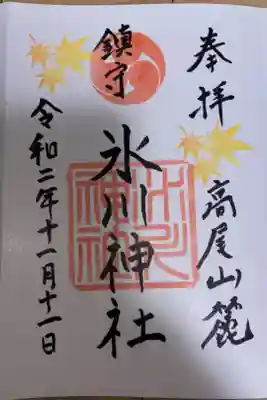 奉拝
高尾山麓
鎮守
氷川神社
令和二年十一月十一日